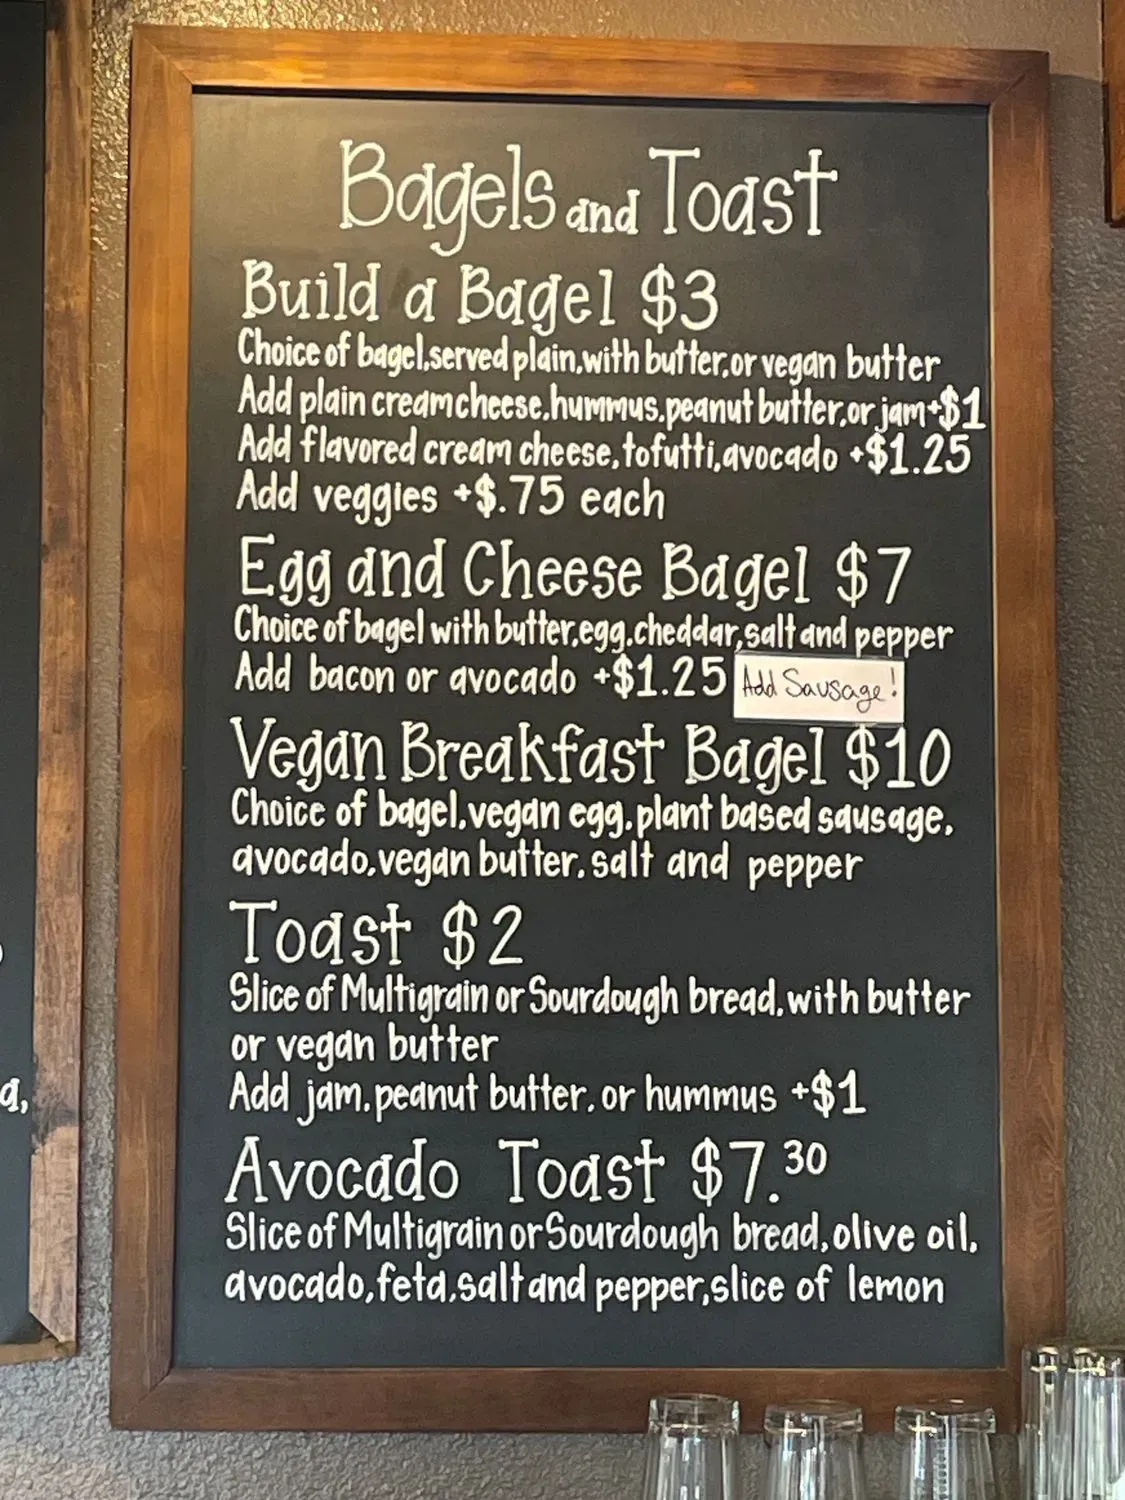 Bagels and Toast
Build a Bagel $3
Choice of bagel, served plain, with butter, or vegan butter
Add plain cream cheese, hummus, peanut butter, or jam +$1
Add flavored cream cheese, tofutti, avocado +$1.25
Add veggies +$.75 each
Egg and Cheese Bagel $7
Choice of bagel with butter, egg, cheddar, salt and pepper
Add bacon or avocado +$1.25 Add Sausage!
Vegan Breakfast Bagel $10
Choice of bagel, vegan egg, plant based sausage,
avocado, vegan butter, salt and pepper
Toast $2
Slice of Multigrain or Sourdough bread, with butter
or vegan butter
Add jam, peanut butter, or hummus +$1
Avocado Toast $7.30
Slice of Multigrain or Sourdough bread, olive oil,
avocado, feta, salt and pepper, slice of lemon